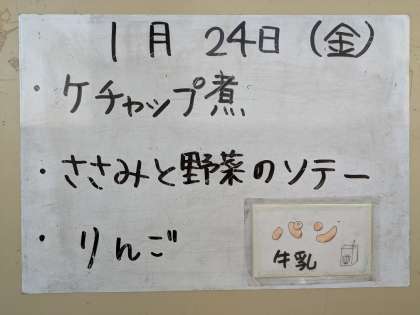 1月 24日(金)
・ケチャップ煮
・ささみと野菜のソテー
・りんご
パン
牛乳